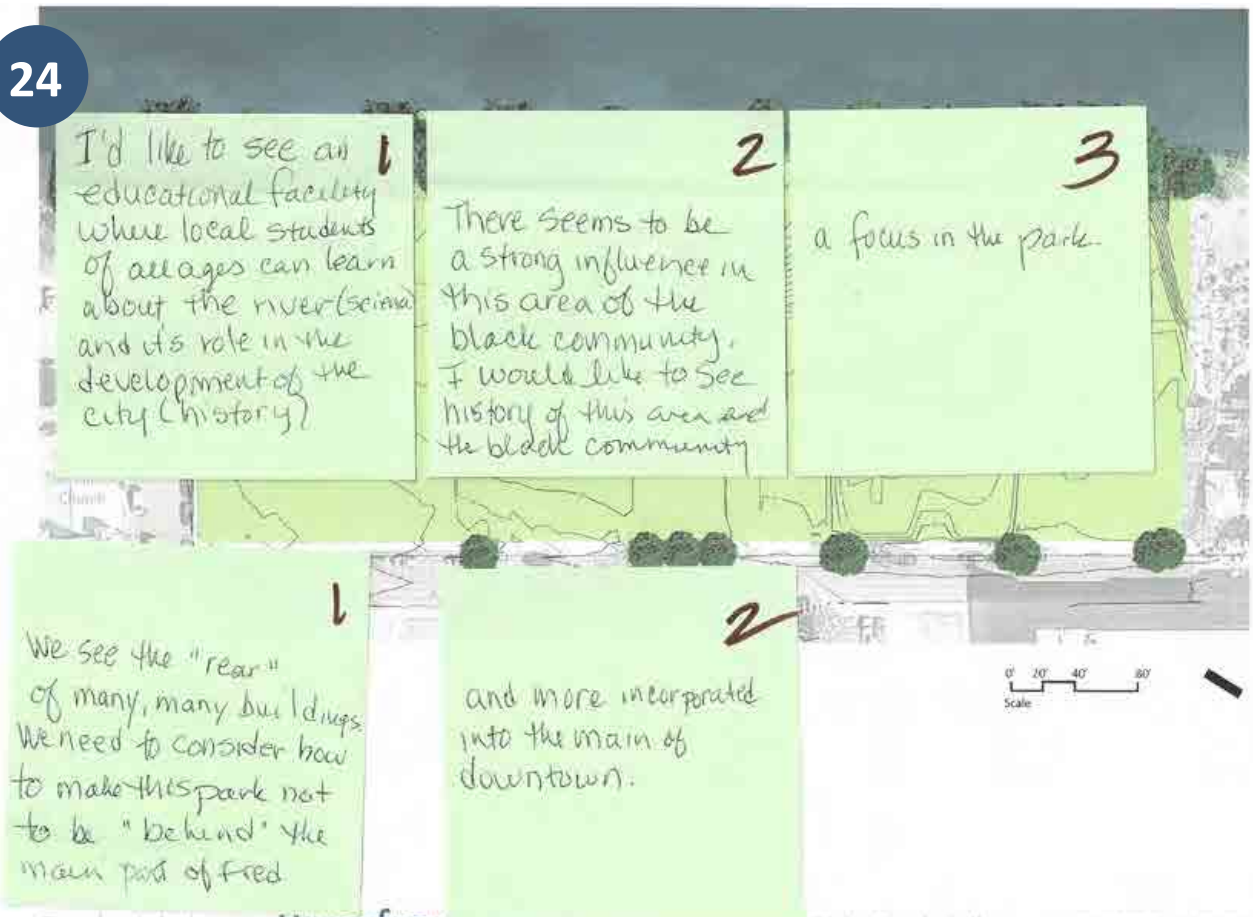 24
1
I'd like to see an
educational facility
where local students
of all ages can learn
about the river (science)
and its role in the
development of the
city (history)
2
There seems to be
a strong influence in
this area of the
black community.
I would like to see
history of this area and
the black community
3
a focus in the park.
Church
1
We see the "rear"
of many, many buildings
We need to consider how
to make this park not
to be "behind" the
main part of Fred
2
and more incorporated
into the main of
downtown.
0' 20' 40' 80'
Scale